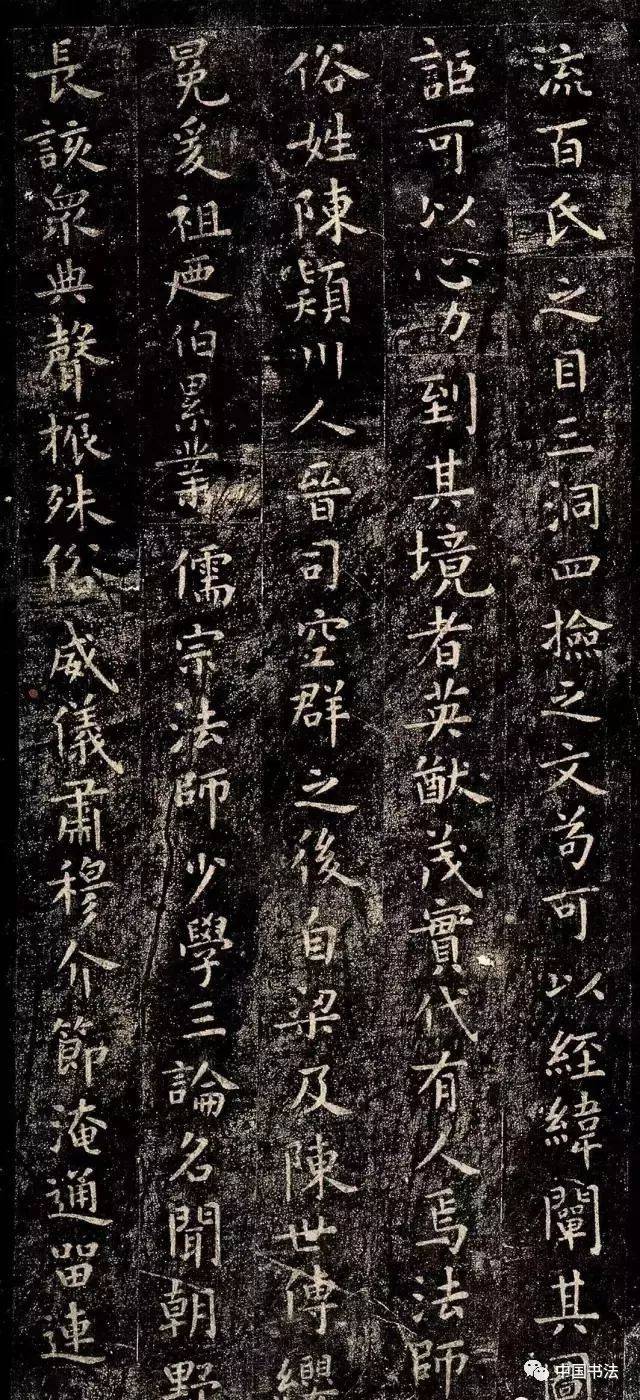 流百氏之目三洞四撿之文苟可以經緯闡其圖
詎可以心力到其境者英猷茂實代有人焉法師
俗姓陳穎川人晉司空群之後自梁及陳世傳纓
冕爰祖迺伯累業儒宗法師少學三論名聞朝野
長該眾典聲振殊俗威儀肅穆介節淹通留連
中国书法